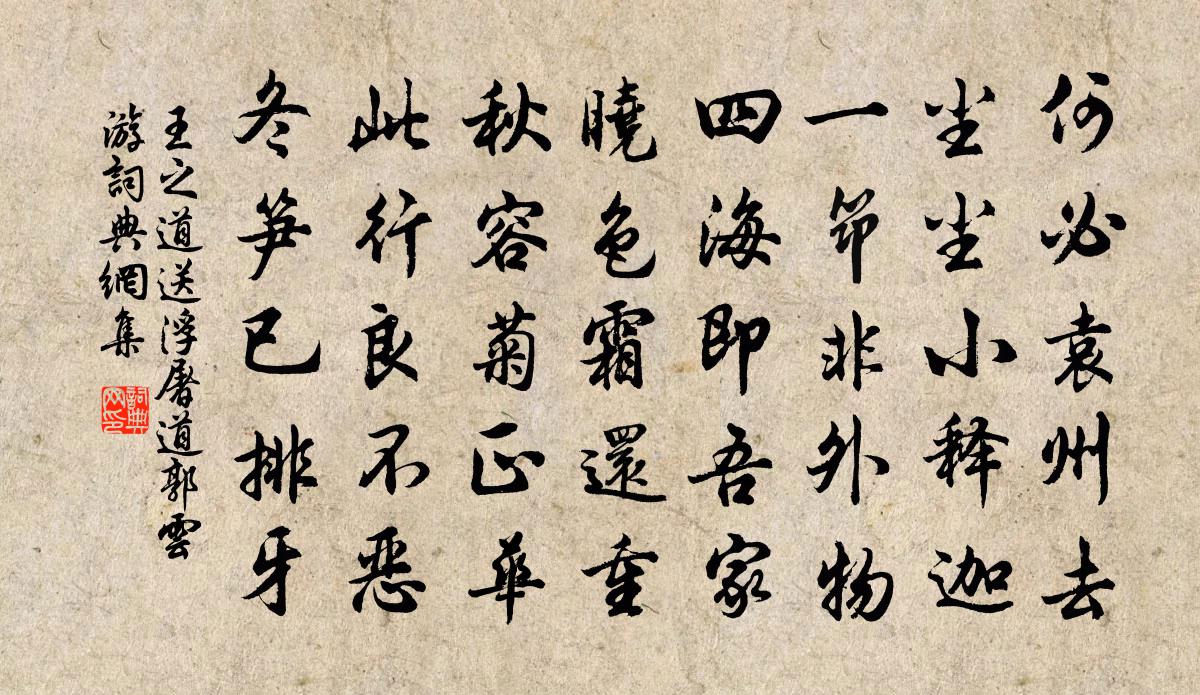 何必袁州去
尘尘小释迦
一筇非外物
四海即吾家
曉色霜還重
秋容菊正華
此行良不惡
冬笋已排牙
王之道送浮屠道郭雲
游詞典網集
詞典
网印